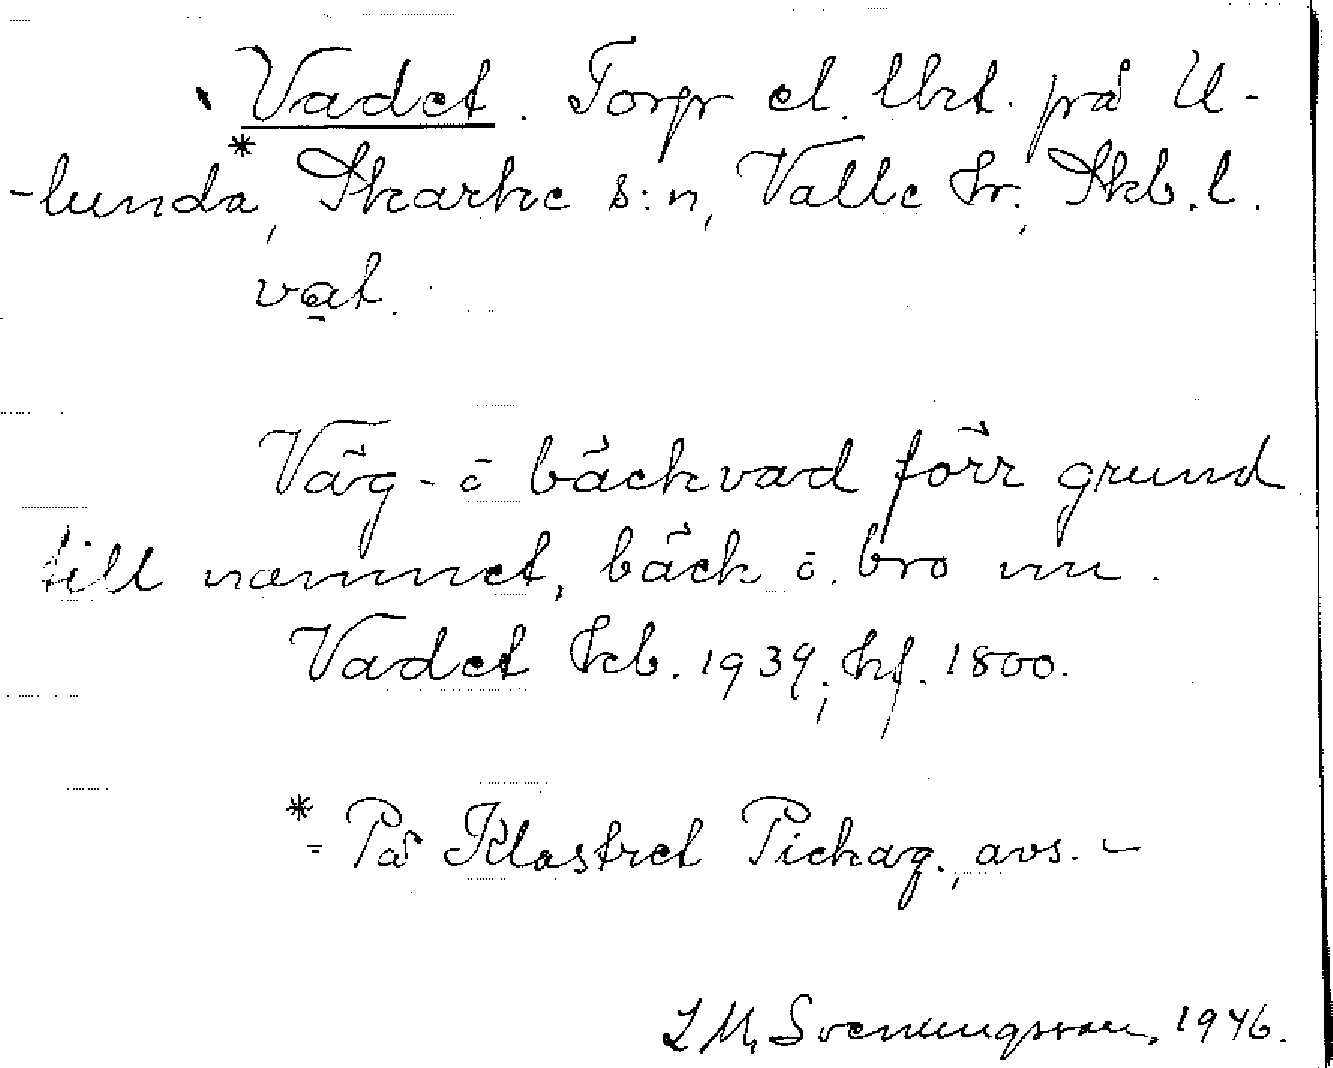 Vadet. Torp el. lht. på U-
-lunda*, Skarke s:n, Valle hr., Skb.l.
vat.
Väg- ō bäckvad förr grund
till namnet, bäck ō. bro nu.
Vadet kb. 1939; hf. 1800.
* = På Klostret Pickag., avs. –
L M, Svenungsson, 1946.